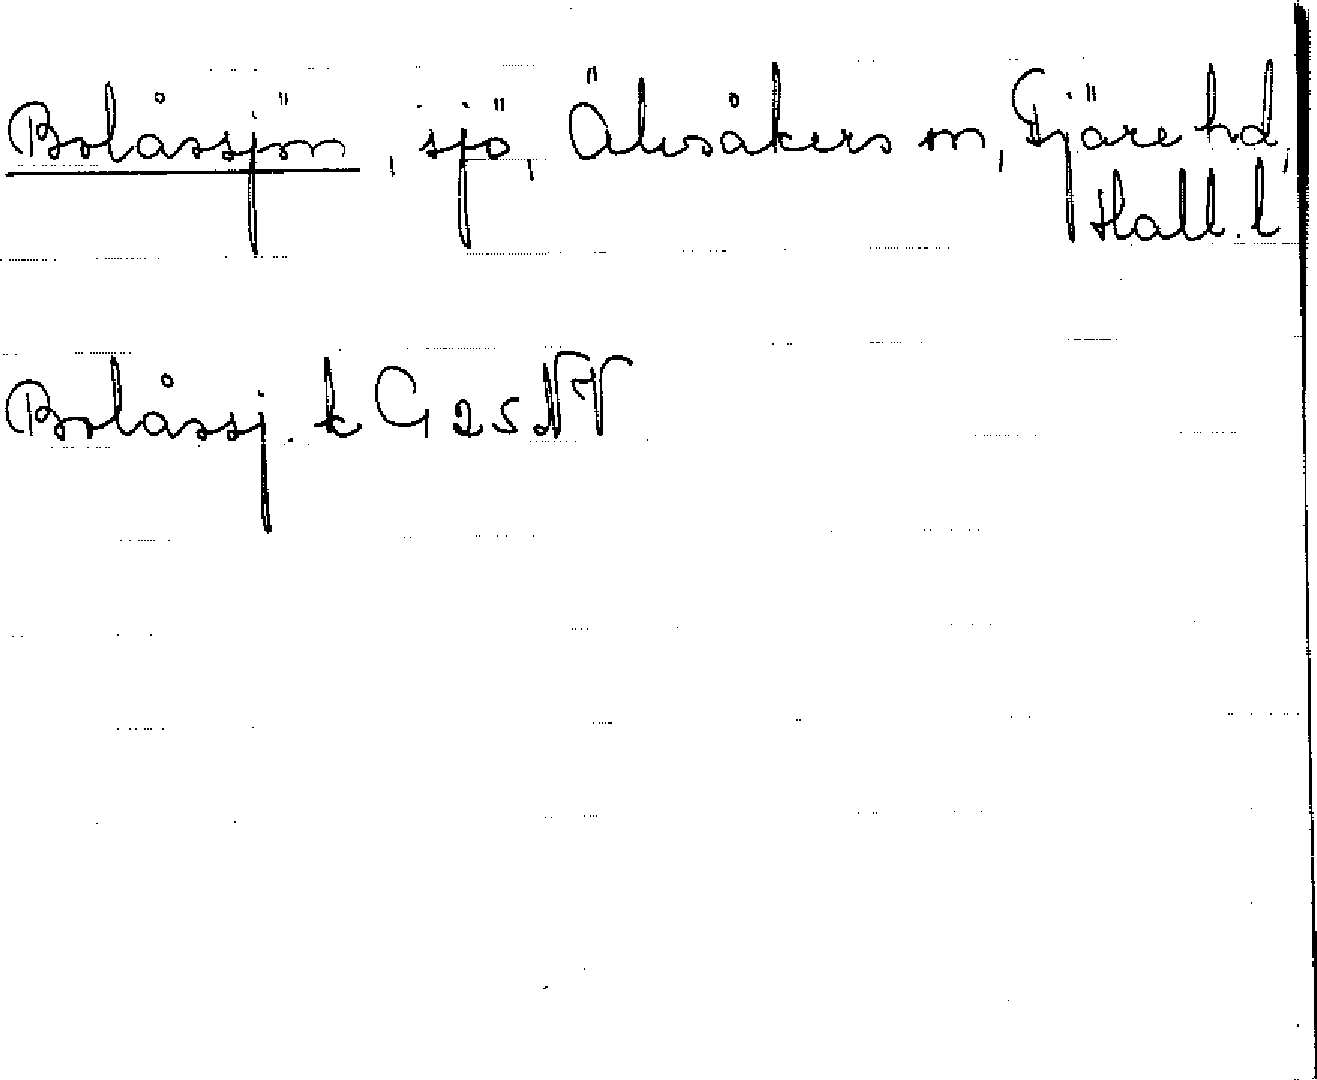 Bolåssjön, sjö, Älvsåkers sn, Fjäre hd,
Hall. l
Bolåssj. k G 25 NV